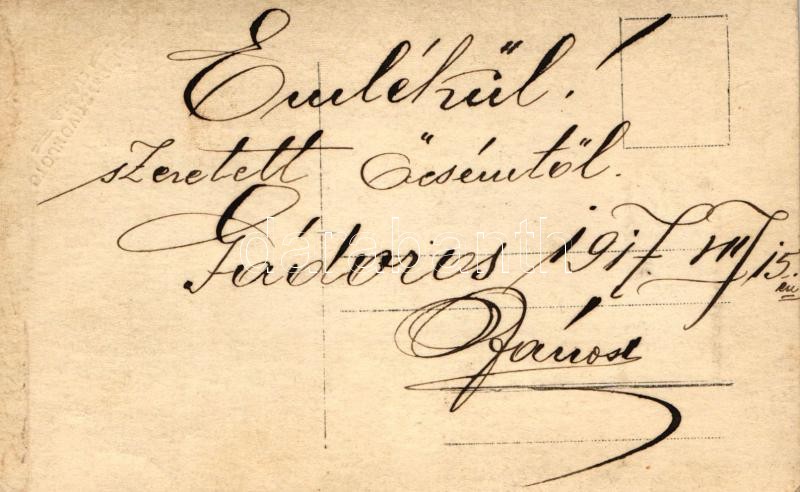 Emlékül!
szeretett Öcsémtől.
Gádoros 1917. VIII/15.
én
János
darabanth